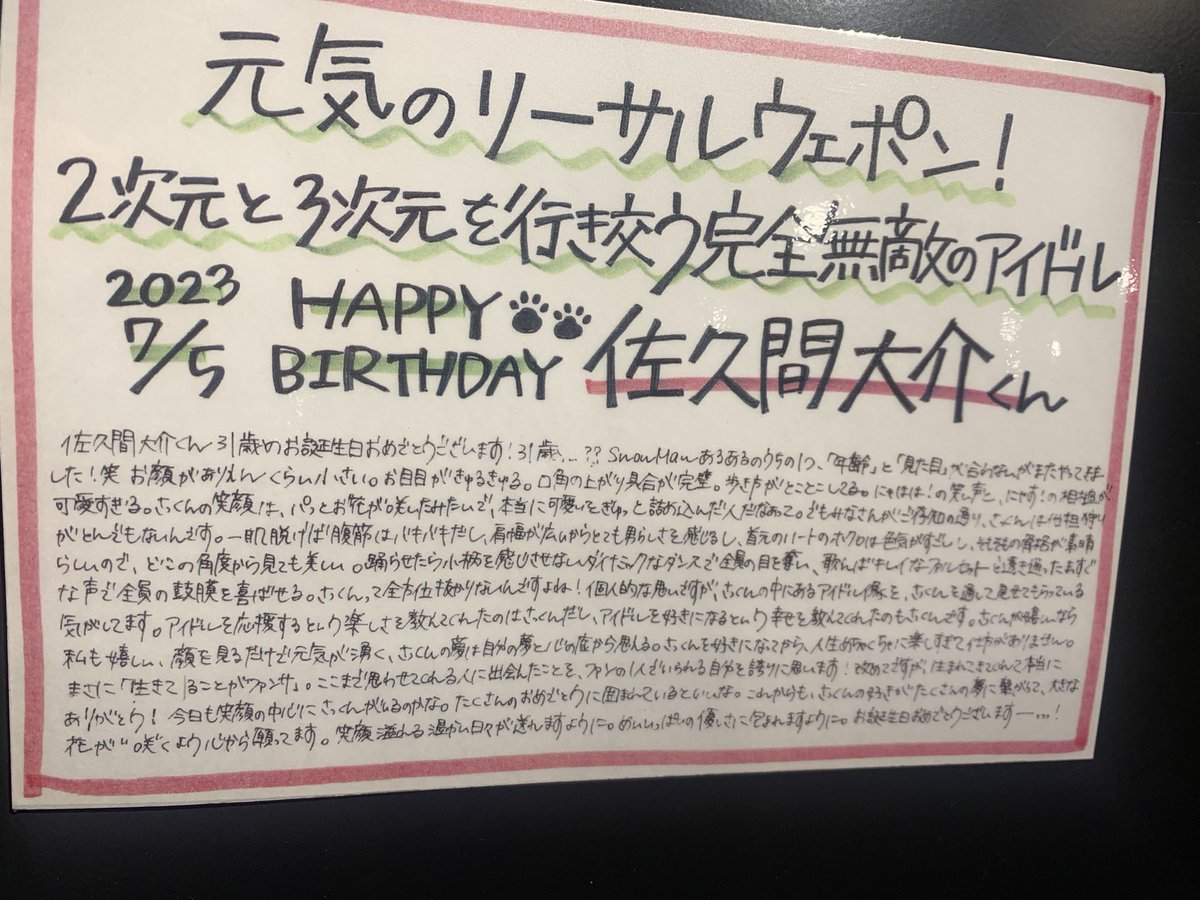 元気のリーサルウェポン!
2次元と3次元を行き交う完全無敵のアイドル
2023 HAPPY
7/5 BIRTHDAY 佐久間大介くん
佐久間大介くん31歳のお誕生日おめでとうございます!31歳…?? SnowManあるあるのうちの1つ、「年齢」と「見た目」が合わないがまたやってきま
した!笑 お顔がありえんくらい小さい。お目目がきゅるきゅる。口角の上がり具合が完璧。歩き方がとことこしてる。にゃはは!の笑い声と、にゃす!の相性が
可愛すぎる。さくんの笑顔は、パッとお花が咲いたみたいで、本当に可愛いをぎゅっと詰め込んだ人だなあって。でもみなさんがご存知の通り、さくんは他担狩り
がとんでもないんです。一肌脱げば腹筋はバキバキだし、肩幅が広いからとても男らしさを感じるし、首元のハートのホクロは色気がすごいし、そもそもの骨格が素晴
らしいので、どこの角度から見ても美しい。踊らせたら小柄を感じさせないダイナミックなダンスで全員の目を奪い、歌えばキレイなファルセットと透き通ったまっすぐ
な声で全員の鼓膜を喜ばせる。さくんって全方位抜かりないんですよね!個人的な思いですが、さくんの中にあるアイドル像を、さくんを通して見せてもらっている
気がしてます。アイドルを応援するという楽しさを教えてくれたのはさっくんだし、アイドルを好きになるという幸せを教えてくれたのもさくんです。さくんが嬉しいなら
私も嬉しい、顔を見るだけで元気が湧く、さくんの夢は自分の夢と心の底から思える。さくんを好きになってから、人生めちゃくちゃに楽しすぎて仕方がありません。
まさに「生きてることがファンサ」。ここまで思わせてくれる人に出会えたことを、ファンの1人でいられる自分を誇りに思います!改めてですが、生まれてきてくれて本当に
ありがとう!今日も笑顔の中心にさっくんがいるのかな。たくさんのおめでとうに囲まれているといいな。これからも、さくんの好きがたくさんの夢に繋がって、大きな
花が咲くよう心から願ってます。笑顔溢れる温かい日々が送れますように。めいいっぱいの優しさに包まれますように。お誕生日おめでとうございますー…!